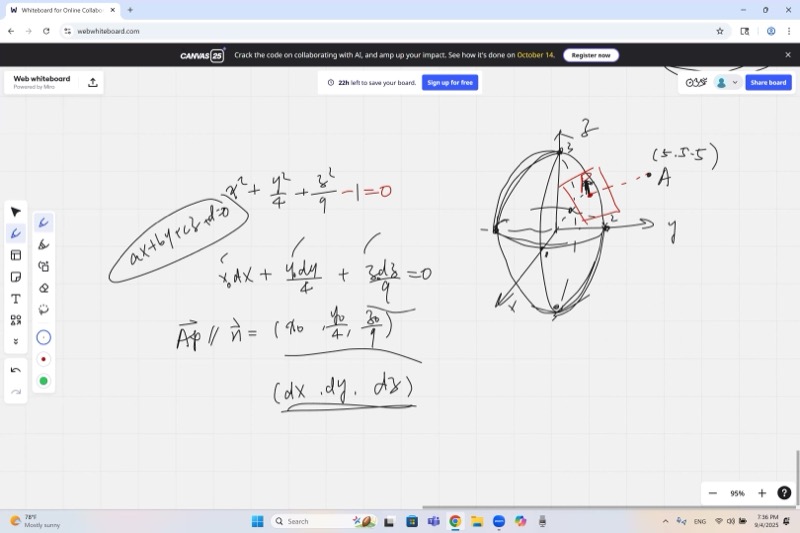 Whiteboard for Online Collabo
webwhiteboard.com
CANVAS 25 Crack the code on collaborating with AI, and amp up your impact. See how it's done on October 14. Register now
Web whiteboard
Powered by Miro
22h left to save your board. Sign up for free
Share board
x² + y²/4 + z²/9 - 1 = 0
ax+by+cz+d=0
x₀dx + y₀dy/4 + z₀dz/9 = 0
Ap // n = (x₀, y₀/4, z₀/9)
(dx, dy, dz)
z
3
(5.5.5)
A
2
y
x
95%
78°F
Mostly sunny
Search
ENG
7:36 PM
9/4/2025